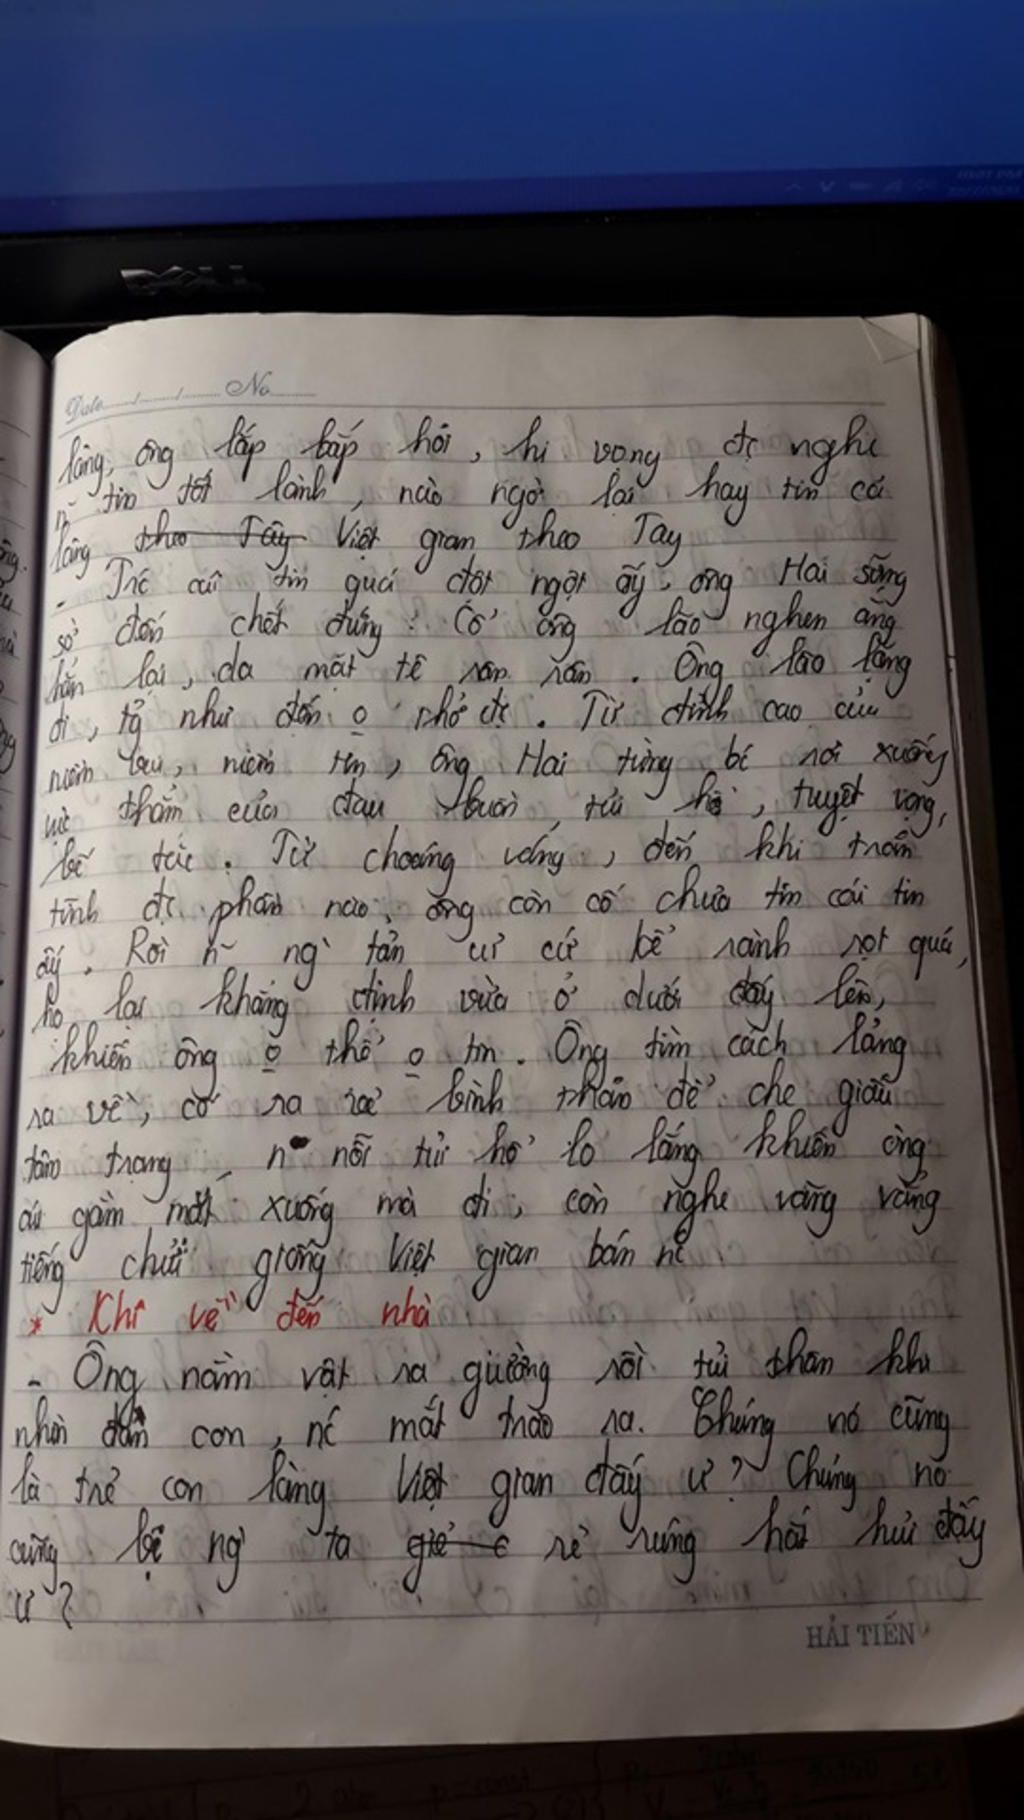 DELL
Date....../....../...... No.........
làng, ông lắp bắp hỏi, hi vọng đc nghe
~ tin tốt lành, nào ngờ lại hay tin cả
làng theo Tây Việt gian theo Tây
- Trc cái tin quá đột ngột ấy, ông Hai sững
sờ đến chết đứng. Cổ ông lão nghẹn ắng
hẳn lại, da mặt tê rân rân. Ông lão lặng
đi, tg như đến o thở đc. Từ đỉnh cao của
niềm vui, niềm tin, ông Hai từng bc rơi xuống
vực thẳm của đau buồn, tủi hổ, tuyệt vọng,
bế tắc. Từ choáng váng, đến khi trấn
tĩnh đc phần nào, ông còn cố chưa tin cái tin
ấy. Rồi n~ ng` tản cư cứ kể rành rọt quá,
họ lại khẳng định vừa ở dưới đấy lên,
khiến ông o thể o tin. Ông tìm cách lảng
ra về, cố ra vẻ bình thản để che giấu
tâm trạng n nỗi tủi hổ lo lắng khiến ông
cúi gằm mặt xuống mà đi, còn nghe văng vẳng
tiếng chửi giống Việt gian bán nc
* Khi về đến nhà
- Ông nằm vật ra giường rồi tủi thân khi
nhìn đàn con, nc mắt trào ra. Chúng nó cũng
là trẻ con làng Việt gian đấy ư? Chúng nó
cũng bị ng ta giẻ c rẻ rúng hắt hủi đấy
ư?
HẢI TIẾN